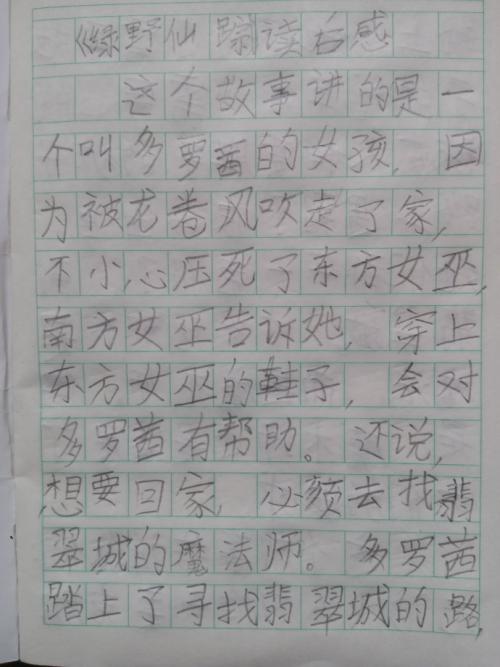 《绿野仙踪读后感
这个故事讲的是一
个叫多罗茜的女孩，因
为被龙卷风吹走了家，
不小心压死了东方女巫，
南方女巫告诉她，穿上
东方女巫的鞋子，会对
多罗茜有帮助。还说，
想要回家，必须去找翡
翠城的魔法师。多罗茜
踏上了寻找翡翠城的路，